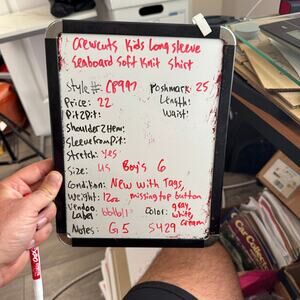 Crewcuts Kids Long sleeve
Seaboard Soft Knit Shirt
Style#: CB997 Poshmark: 25
Price: 22 Length:
Pit2Pit: Waist:
Shoulder2Hem:
SleeveFromPit:
Stretch: yes
Size: US Boy's 6
Condition: New with Tags,
Weight: 12oz missing top button
Vendoo Label: Color: gray, white, cream
Notes: G5 S429